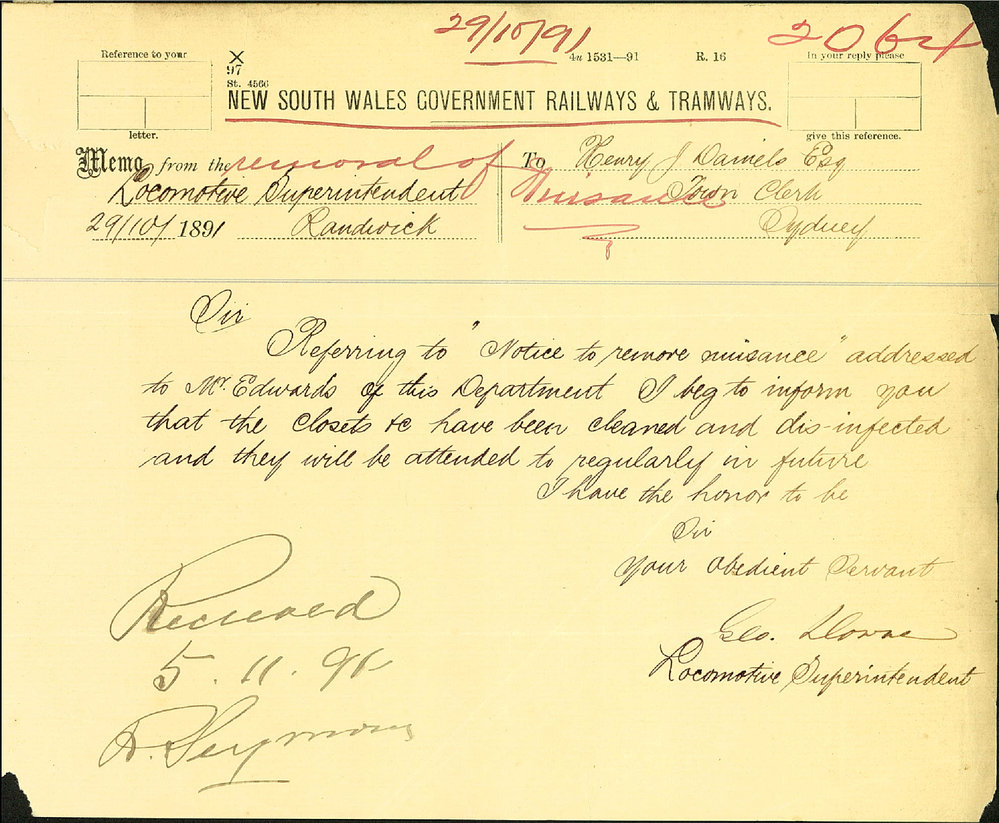 29/10/91
2064
Reference to your
X
97
St. 4566
4u 1531—91 R. 16
In your reply please
NEW SOUTH WALES GOVERNMENT RAILWAYS & TRAMWAYS.
letter.
give this reference.
Memo. from the
removal of nuisance
Locomotive Superintendent
29/10/1891 Randwick
To Henry J Daniels Esq
Town Clerk
Sydney
Sir
Referring to "Notice to remove nuisance" addressed
to Mr. Edwards of this Department I beg to inform you
that the closets &c have been cleaned and dis-infected
and they will be attended to regularly in future
I have the honor to be
Sir
Your Obedient Servant
Geo. Downe
Locomotive Superintendent
Received
5.11.91
R. Seymour